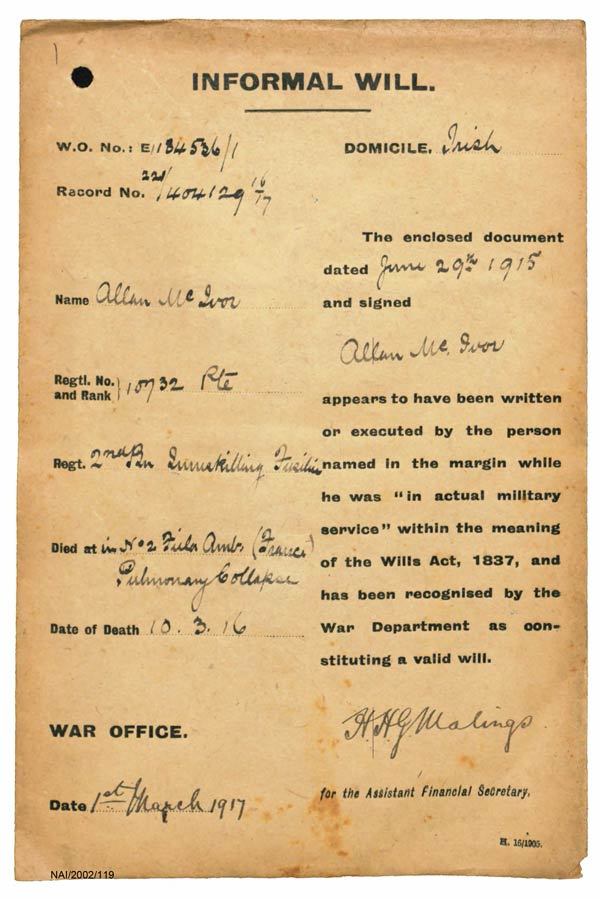 INFORMAL WILL.
W.O. No.: E/184536/1
Record No. 221/404129 16/17
Name Allan Mc Ivor
Regtl. No. and Rank } 10732 Pte
Regt. 2nd Bn Inniskilling Fusilier
Died at in No 2 Field Ambs (France)
Pulmonary Collapse
Date of Death 10.3.16
WAR OFFICE.
Date 1st March 1917
DOMICILE. Irish
The enclosed document
dated June 29th 1915
and signed
Allan Mc. Ivor
appears to have been written
or executed by the person
named in the margin while
he was "in actual military
service" within the meaning
of the Wills Act, 1837, and
has been recognised by the
War Department as con-
stituting a valid will.
H.H.G. Malings
for the Assistant Financial Secretary.
H. 16/1905.
NAI/2002/119